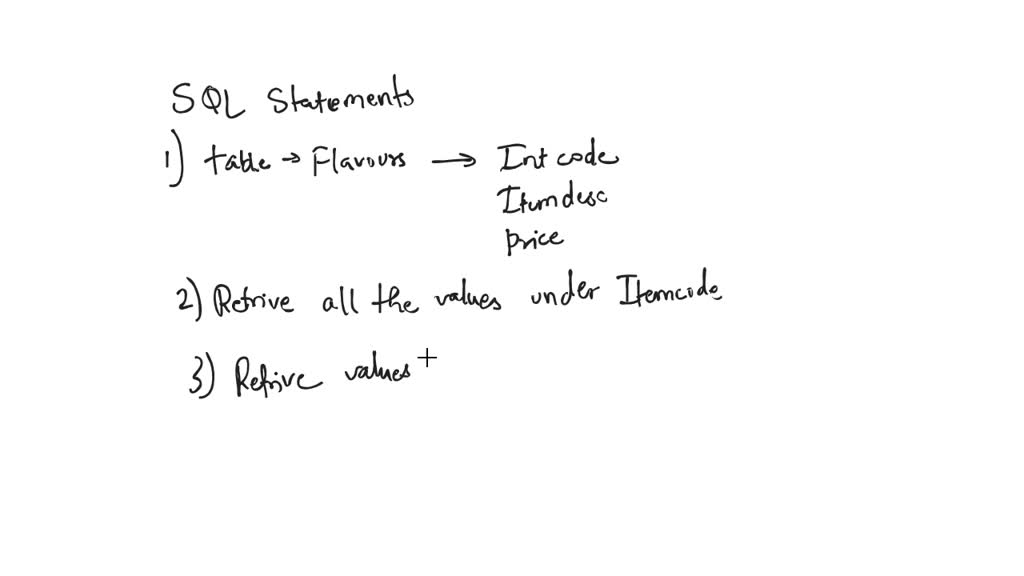 SQL Statements
1) table → Flavours → Int code
Itemdesc
Price
2) Retrive all the values under Itemcode
3) Retrive values